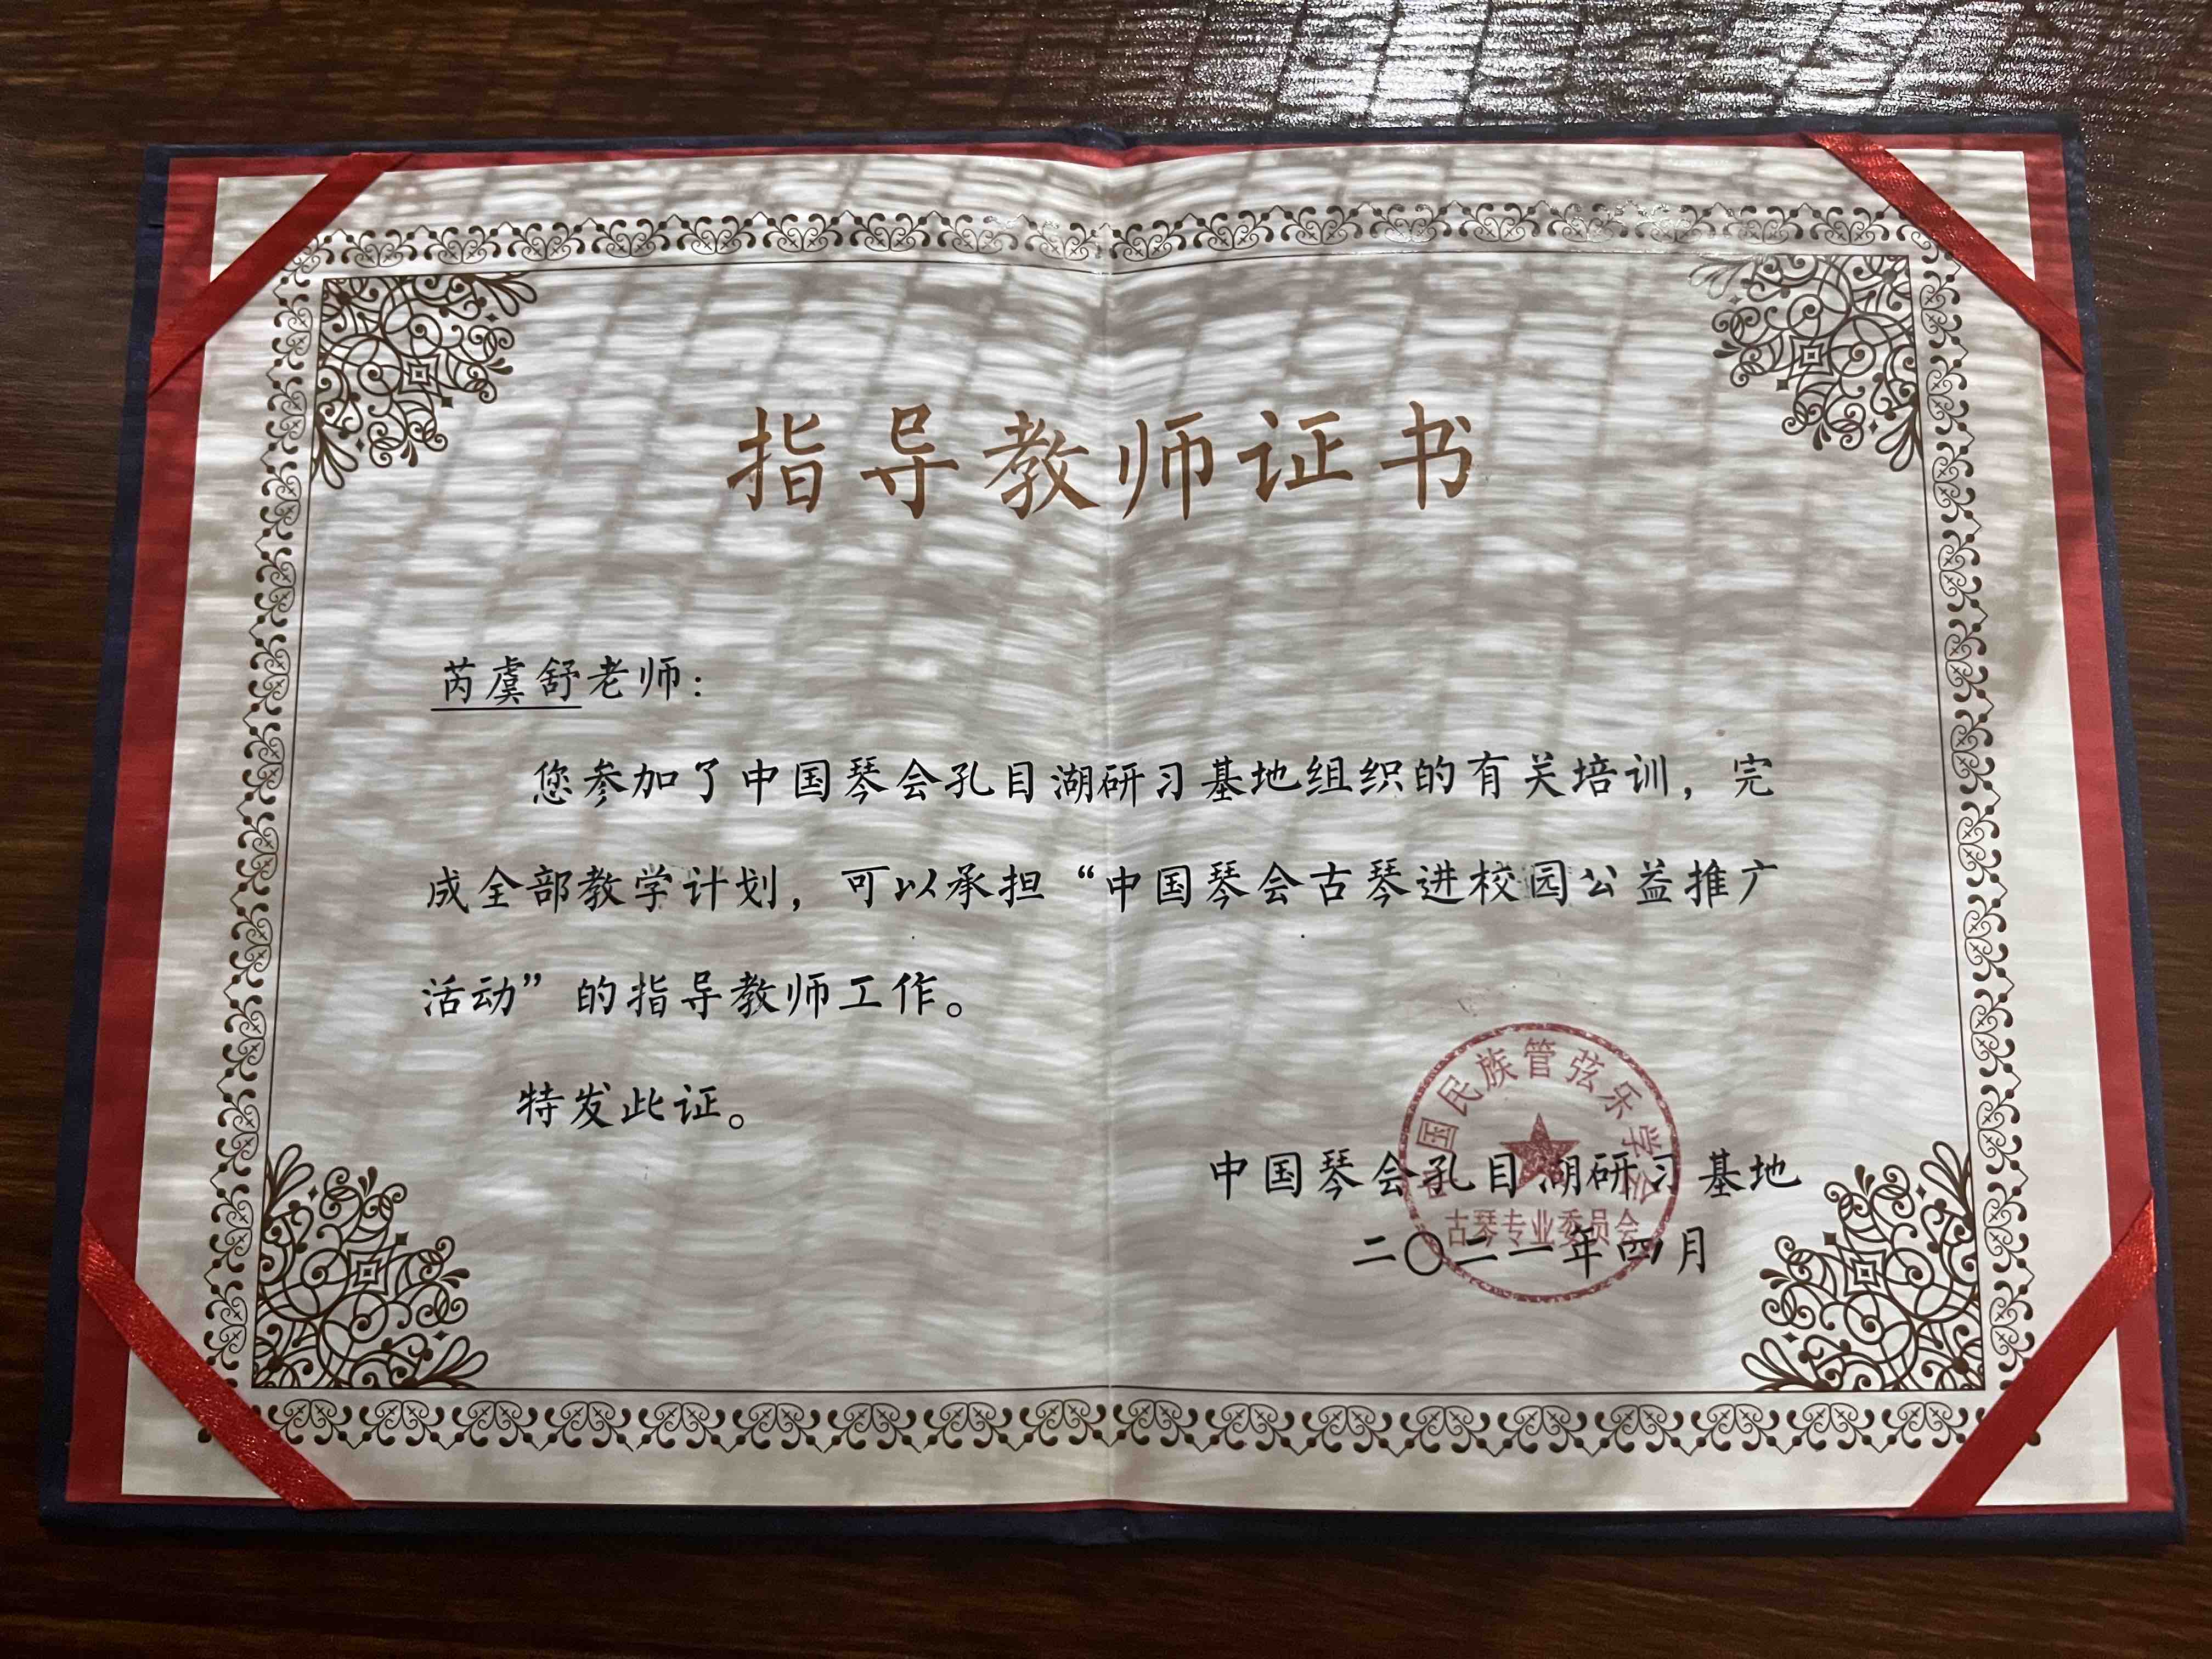 指导教师证书
芮虞舒老师：
您参加了中国琴会孔目湖研习基地组织的有关培训，完
成全部教学计划，可以承担“中国琴会古琴进校园公益推广
活动”的指导教师工作。
特发此证。
中国民族管弦乐学会
中国琴会孔目湖研习基地
古琴专业委员会
二〇二一年四月